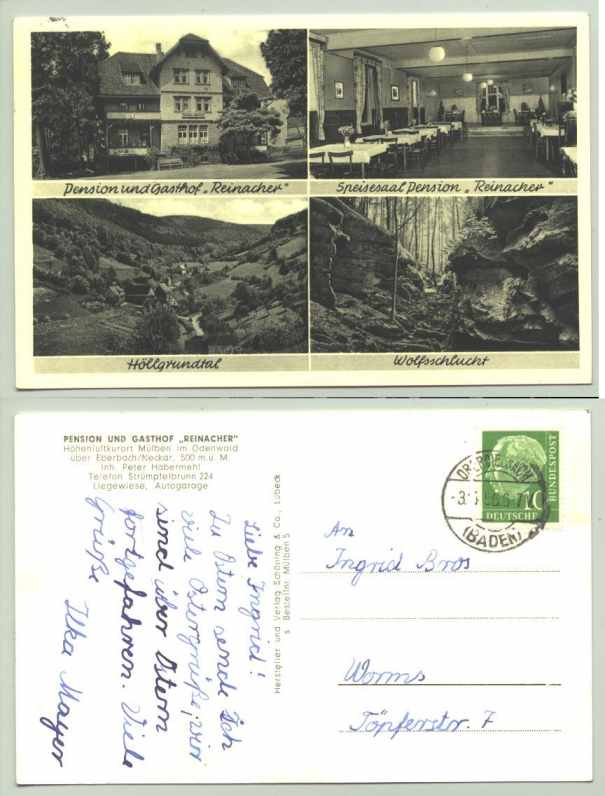 Pension und Gasthof „Reinacher"
Speisesaal Pension „Reinacher"
Höllgrundtal
Wolfsschlucht
PENSION UND GASTHOF „REINACHER"
Höhenluftkurort Mülben im Odenwald
über Eberbach/Neckar, 500 m ü. M.
Inh. Peter Habermehl
Telefon Strümpfelbrunn 224
Liegewiese, Autogarage
Liebe Ingrid!
Zu Ostern sende Ich
viele Ostergrüße, wir
sind über Ostern
fortgefahren. Viele
Grüße
Ilka Mayer
Hersteller und Verlag Schöning & Co., Lübeck
s Bestellnr. Mülben 5
10
DEUTSCHE
BUNDESPOST
(BADEN)
An
Ingrid Bros
Worms
Töpferstr. 7